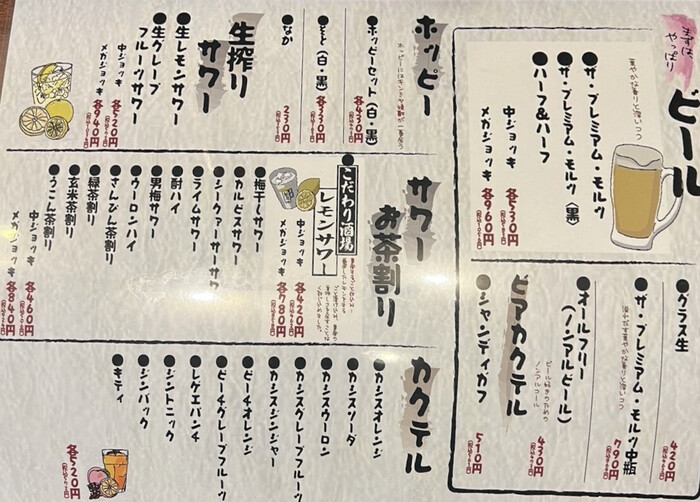 まずは、
やっぱり
ビール
華やかな香りと深いコク
●ザ・プレミアム・モルツ
●ザ・プレミアム・モルツ〈黒〉
●ハーフ&ハーフ
中ジョッキ 各530円
メガジョッキ 各960円
●グラス生 420円
●ザ・プレミアム・モルツ中瓶 790円
●オールフリー
(ノンアルビール) 430円
ビール好きのための
ノンアルコール
ビアカクテル
●シャンディガフ 510円
ホッピー
●ホッピーセット(白・黒) 各430円
●そと(白・黒) 各330円
●なか 230円
生搾り
サワー
●生レモンサワー
●生グレープ
フルーツサワー
中ジョッキ 各520円
メガジョッキ 各940円
サワー
お茶割り
こだわり酒場
レモンサワー
中ジョッキ 各420円
メガジョッキ 各780円
●梅干しサワー
●カルピスサワー
●シークァーサーサワー
●ライムサワー
●酎ハイ
●男梅サワー
●ウーロンハイ
●さんぴん茶割り
●緑茶割り
●玄米茶割り
●うこん茶割り
中ジョッキ 各460円
メガジョッキ 各840円
カクテル
●カシスオレンジ
●カシスソーダ
●カシスウーロン
●カシスグレープフルーツ
●カシスジンジャー
●ピーチオレンジ
●ピーチグレープフルーツ
●レゲエパンチ
●ジントニック
●ジンバック
●キティ
各520円